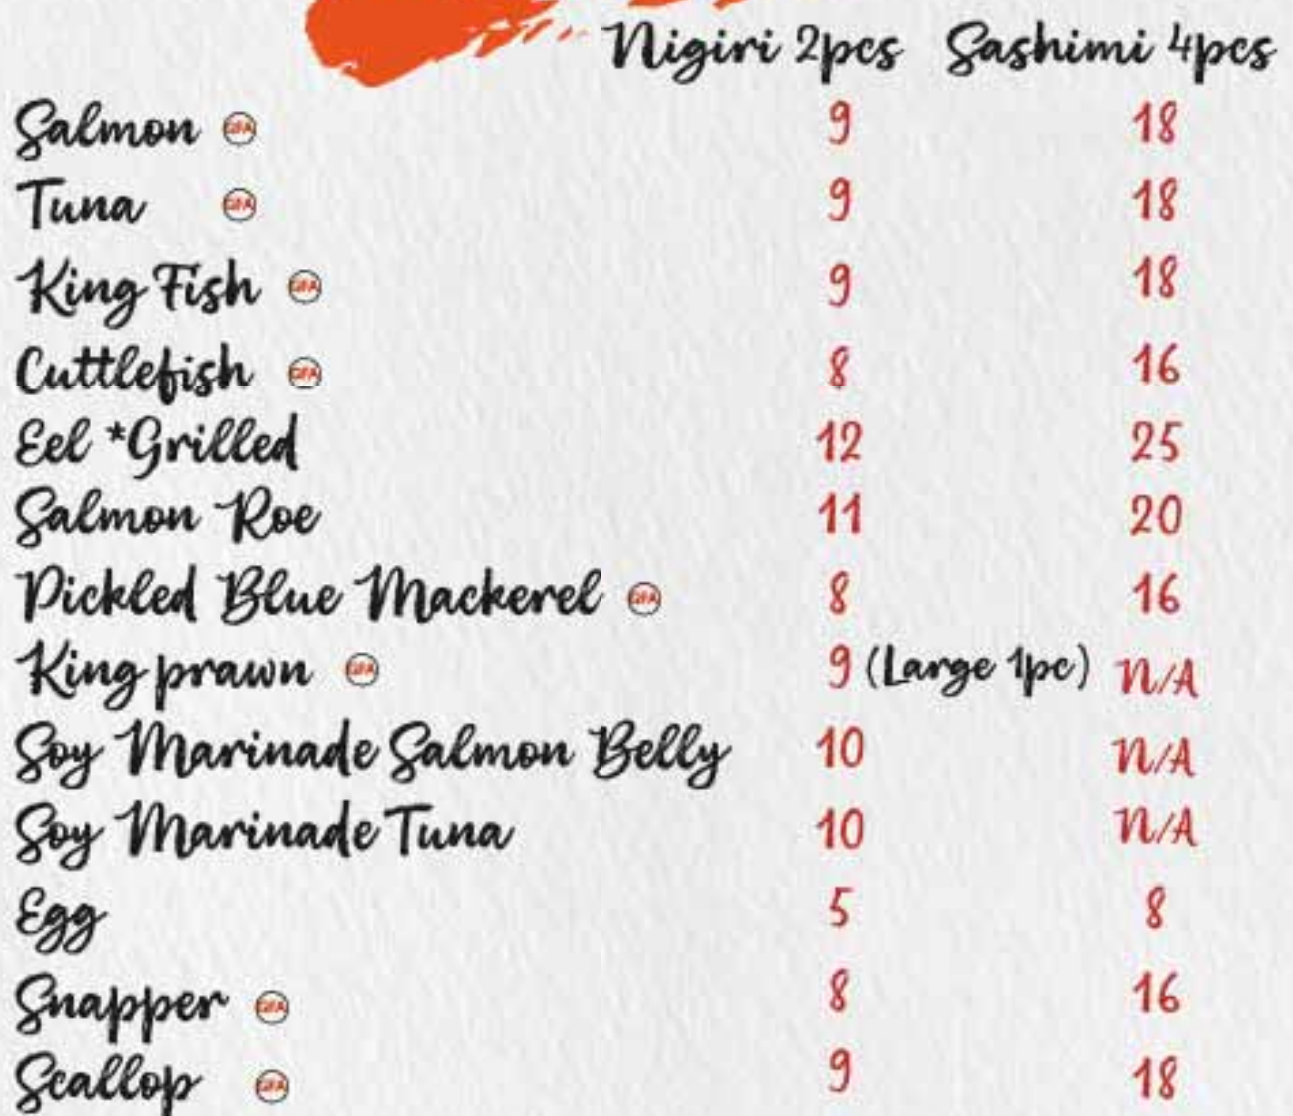 Nigiri 2pcs Sashimi 4pcs
Salmon GFA 9 18
Tuna GFA 9 18
King Fish GFA 9 18
Cuttlefish GFA 8 16
Eel *Grilled 12 25
Salmon Roe 11 20
Pickled Blue Mackerel GFA 8 16
King prawn GFA 9 (Large 1pc) N/A
Soy Marinade Salmon Belly 10 N/A
Soy Marinade Tuna 10 N/A
Egg 5 8
Snapper GFA 8 16
Scallop GFA 9 18